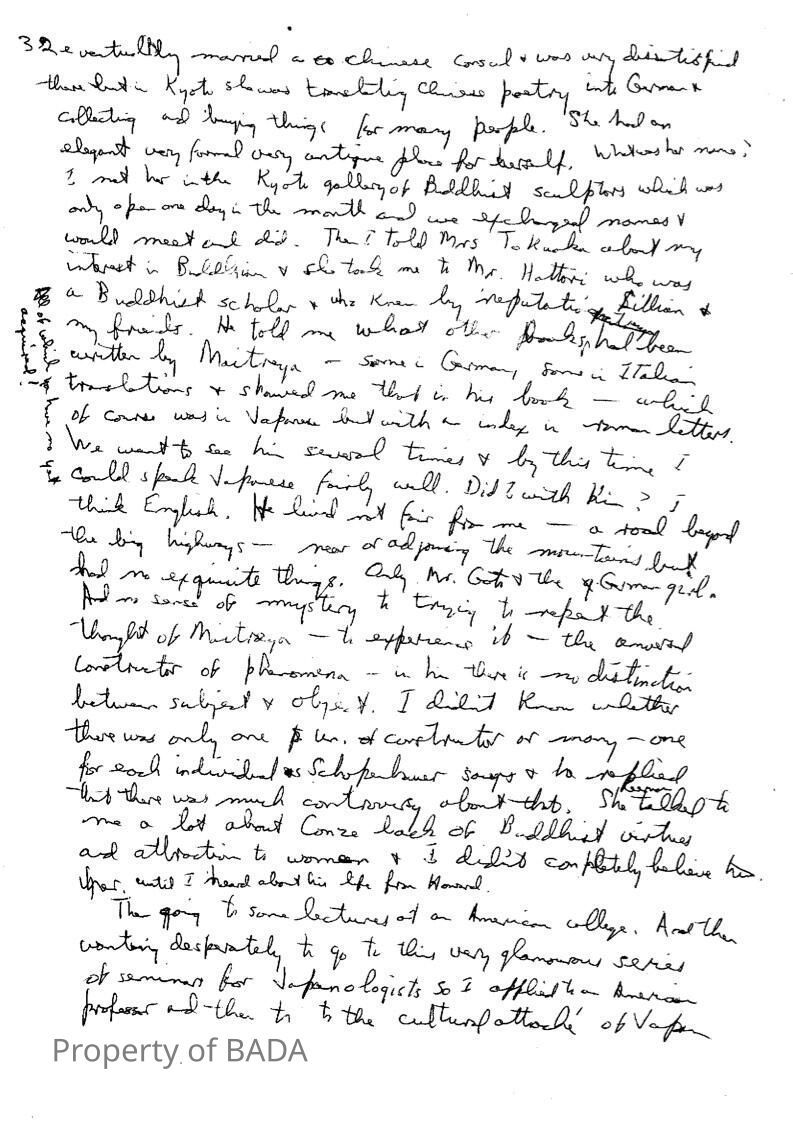 32 eventually married a Chinese consul & was very dissatisfied
there but in Kyoto she was translating Chinese poetry into German &
collecting and buying things for many people. She had an
elegant very formal very antique place for herself. What was her name?
I met her in the Kyoto gallery of Buddhist sculptors which was
only open one day in the month and we exchanged names &
would meet and did. Then I told Mrs Tokuoka about my
interest in Buddhism & she took me to Mr. Hattori who was
a Buddhist scholar & who knew by reputation Lillian &
my friends. He told me what other books had been
written by Maitreya – some in German, some in Italian
translations & showed me that in his book – which
of course was in Japanese but with an index in roman letters.
We went to see him several times & by this time I
could speak Japanese fairly well. Did I with him? I
think English. He lived not far from me – a road beyond
the big highways – near or adjoining the mountains but
had no exquisite things. Only Mr. Goto & the German girl.
And no sense of mystery to trying to repeat the
thought of Maitreya – to experience it – the
constructor of phenomena – in him there is no distinction
between subject & object. I didn't know whether
there was only one un. constructor or many – one
for each individual as Schopenhauer says & he replied
that there was much controversy about that. She talked to
me a lot about Conze lack of Buddhist virtues
and attraction to women & I didn't completely believe
until I heard about his life from Howard.
Then going to some lectures at an American college. And then
wanting desperately to go to this very glamourous series
of seminars for Japanologists so I applied to an American
professor and then to to the cultural attaché of Japan
of which have no yet
acquired!
Property of BADA